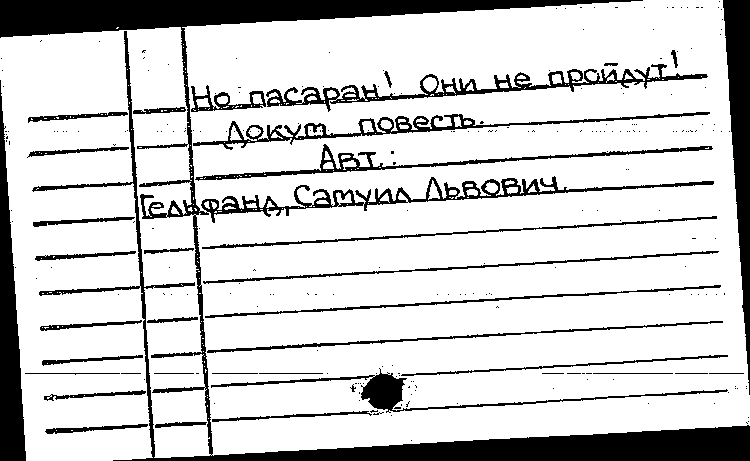 Но пасаран! Они не пройдут!
Докум. повесть.
Авт.:
Гельфанд, Самуил Львович.